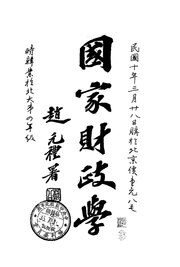 民國十年三月廿八日購於北京價壹元八毛
國家財政學
趙元禮署
時肄業於北大第四年級